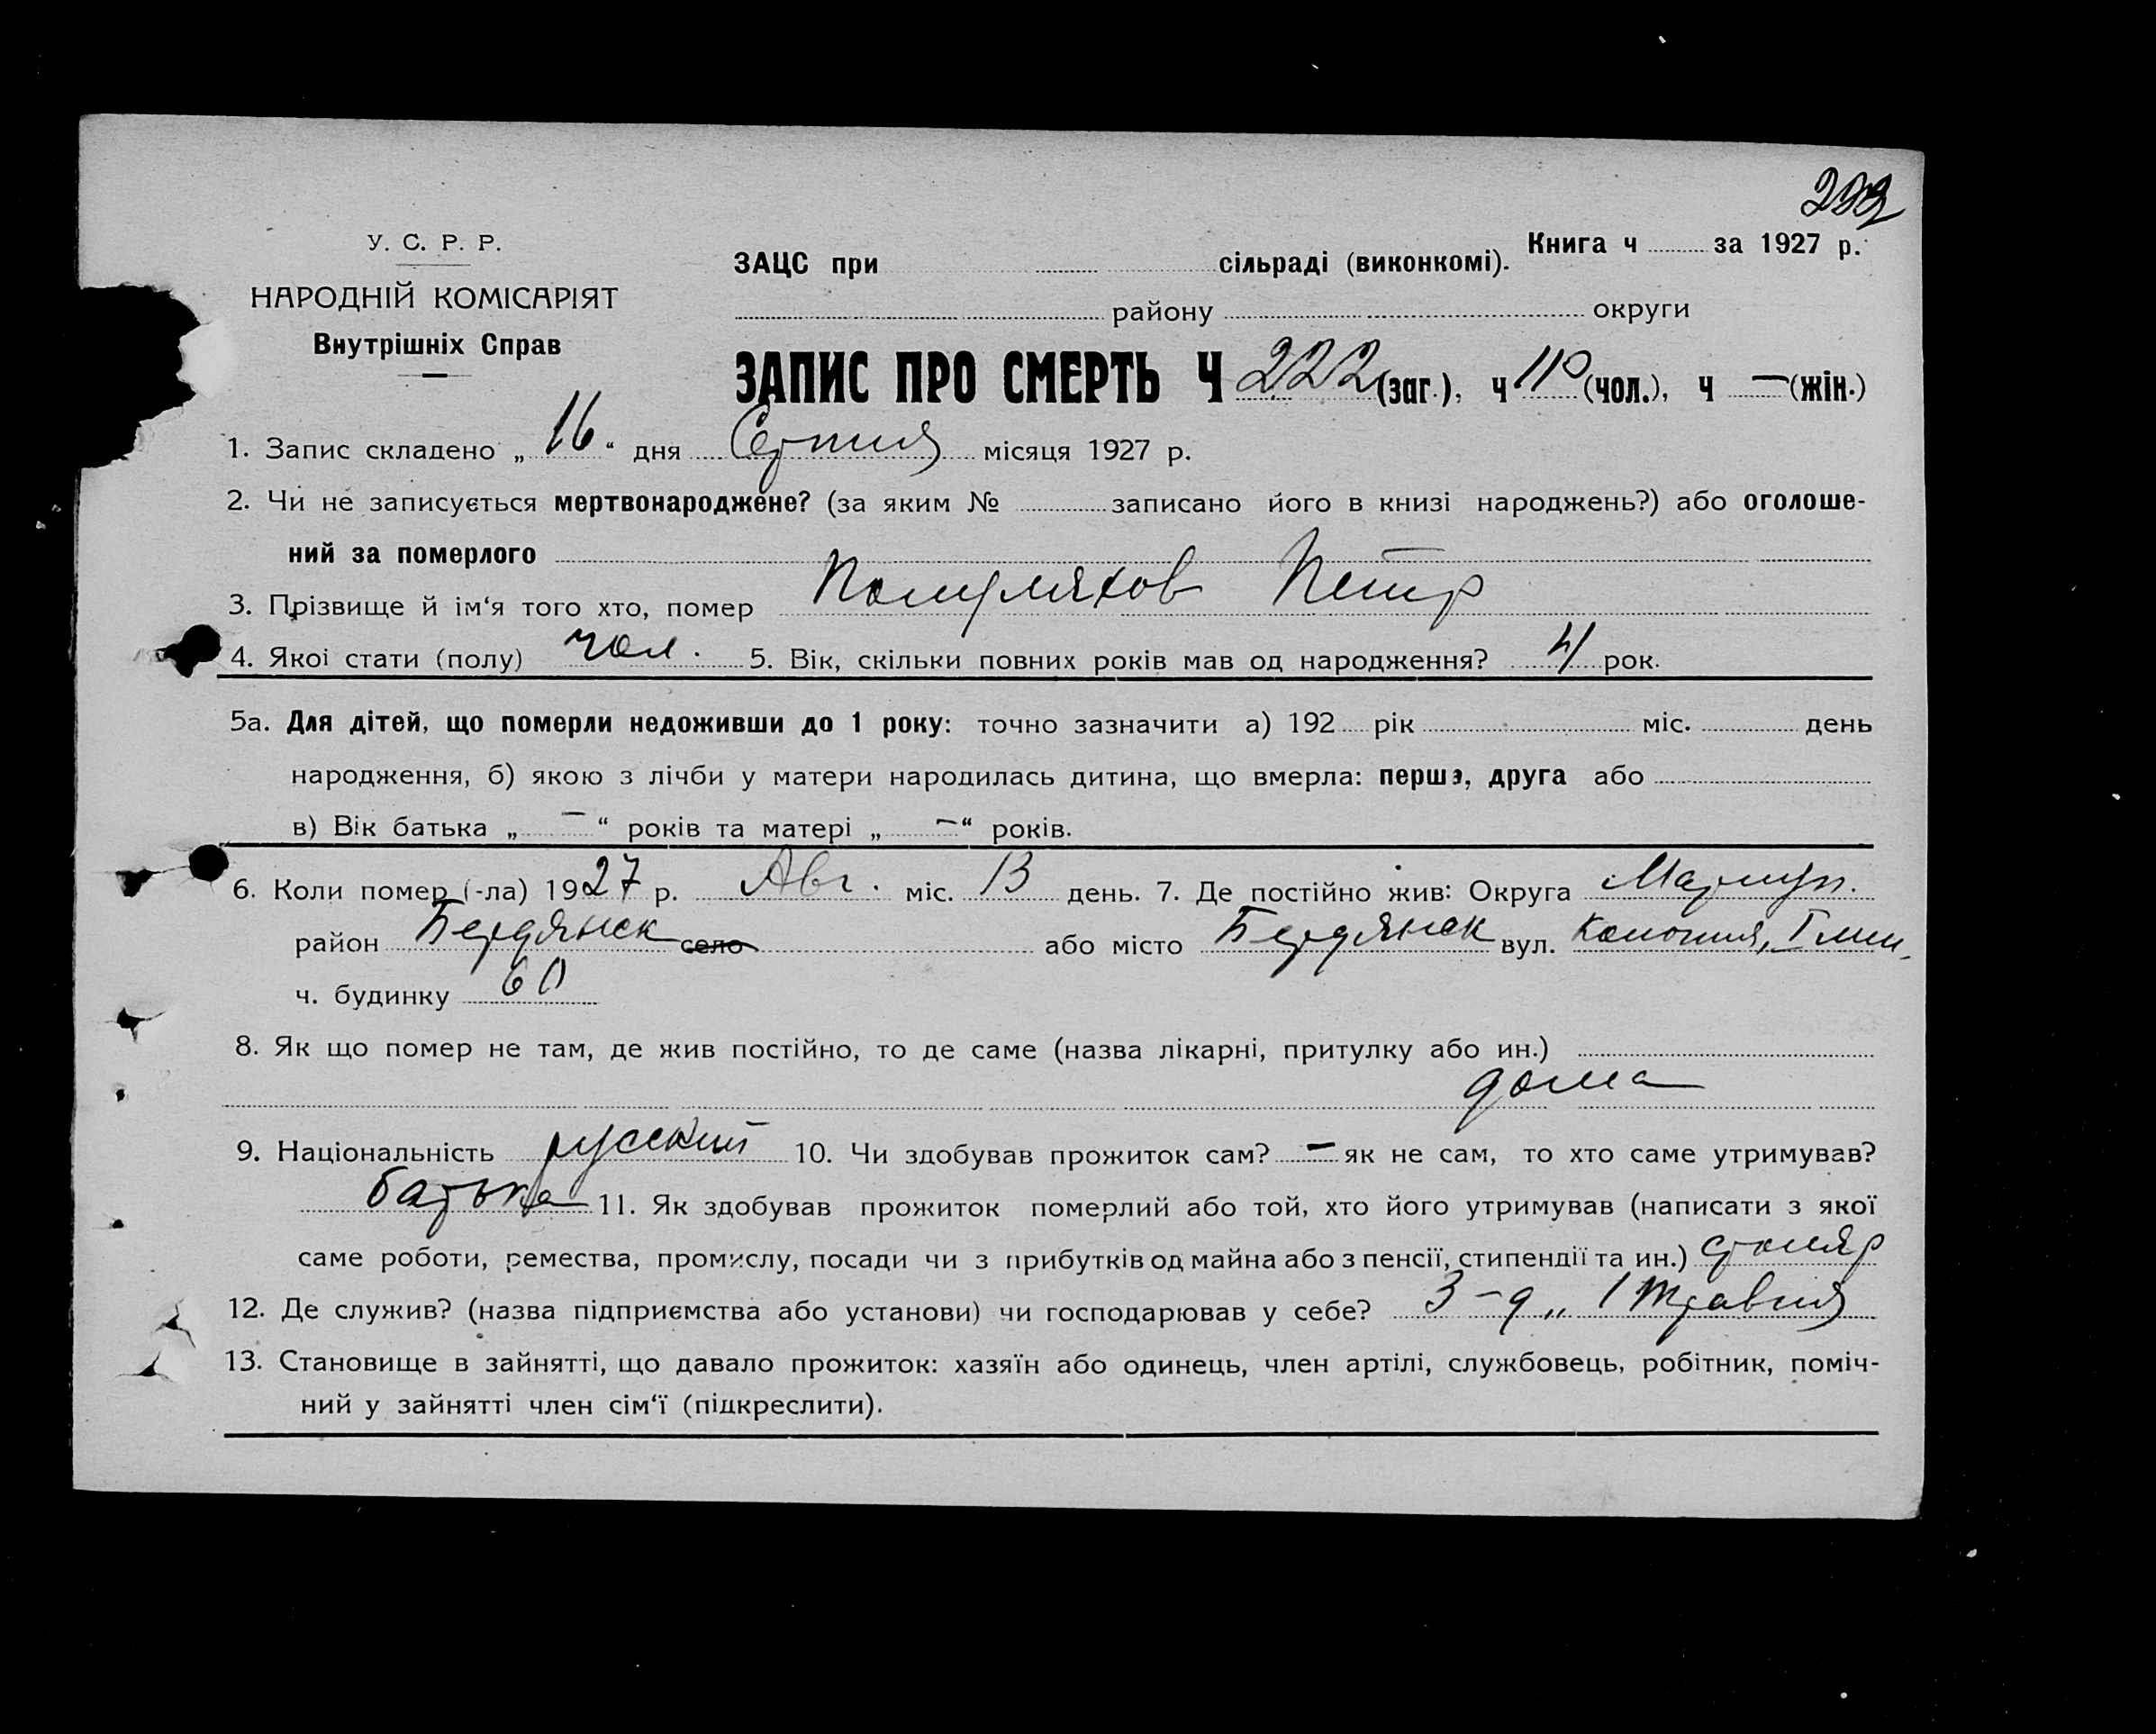 У. С. Р. Р.
НАРОДНІЙ КОМІСАРІЯТ
Внутрішніх Справ
Книга ч за 1927 р.
ЗАЦС при сільраді (виконкомі).
району округи
ЗАПИС ПРО СМЕРТЬ Ч 222 (заг.), ч 110 (чол.), ч — (жін.)
1. Запис складено „ 16 “ дня Серпня місяця 1927 р.
2. Чи не записується мертвонароджене? (за яким № записано його в книзі народжень?) або оголоше-
ний за померлого
3. Прізвище й ім‘я того хто, помер Петр
4. Якої стати (полу) чол. 5. Вік, скільки повних років мав од народження? 4 рок.
5а. Для дітей, що померли недоживши до 1 року: точно зазначити а) 192 рік міс. день
народження, б) якою з лічби у матери народилась дитина, що вмерла: перша, друга або
в) Вік батька „ — “ років та матері „ — “ років.
6. Коли помер (-ла) 1927 р. Авг. міс. 13 день. 7. Де постійно жив: Округа Мариуп.
район Бердянск село або місто Бердянск вул. Колонія, I лин.
ч. будинку 60
8. Як що помер не там, де жив постійно, то де саме (назва лікарні, притулку або ин.)
дома
9. Національність русский 10. Чи здобував прожиток сам? — як не сам, то хто саме утримував?
батько 11. Як здобував прожиток померлий або той, хто його утримував (написати з якої
саме роботи, ремества, промислу, посади чи з прибутків од майна або з пенсії, стипендії та ин.) столяр
12. Де служив? (назва підприємства або установи) чи господарював у себе? З-д „ 1 Травня
13. Становище в зайнятті, що давало прожиток: хазяїн або одинець, член артілі, службовець, робітник, поміч-
ний у зайнятті член сім‘ї (підкреслити).